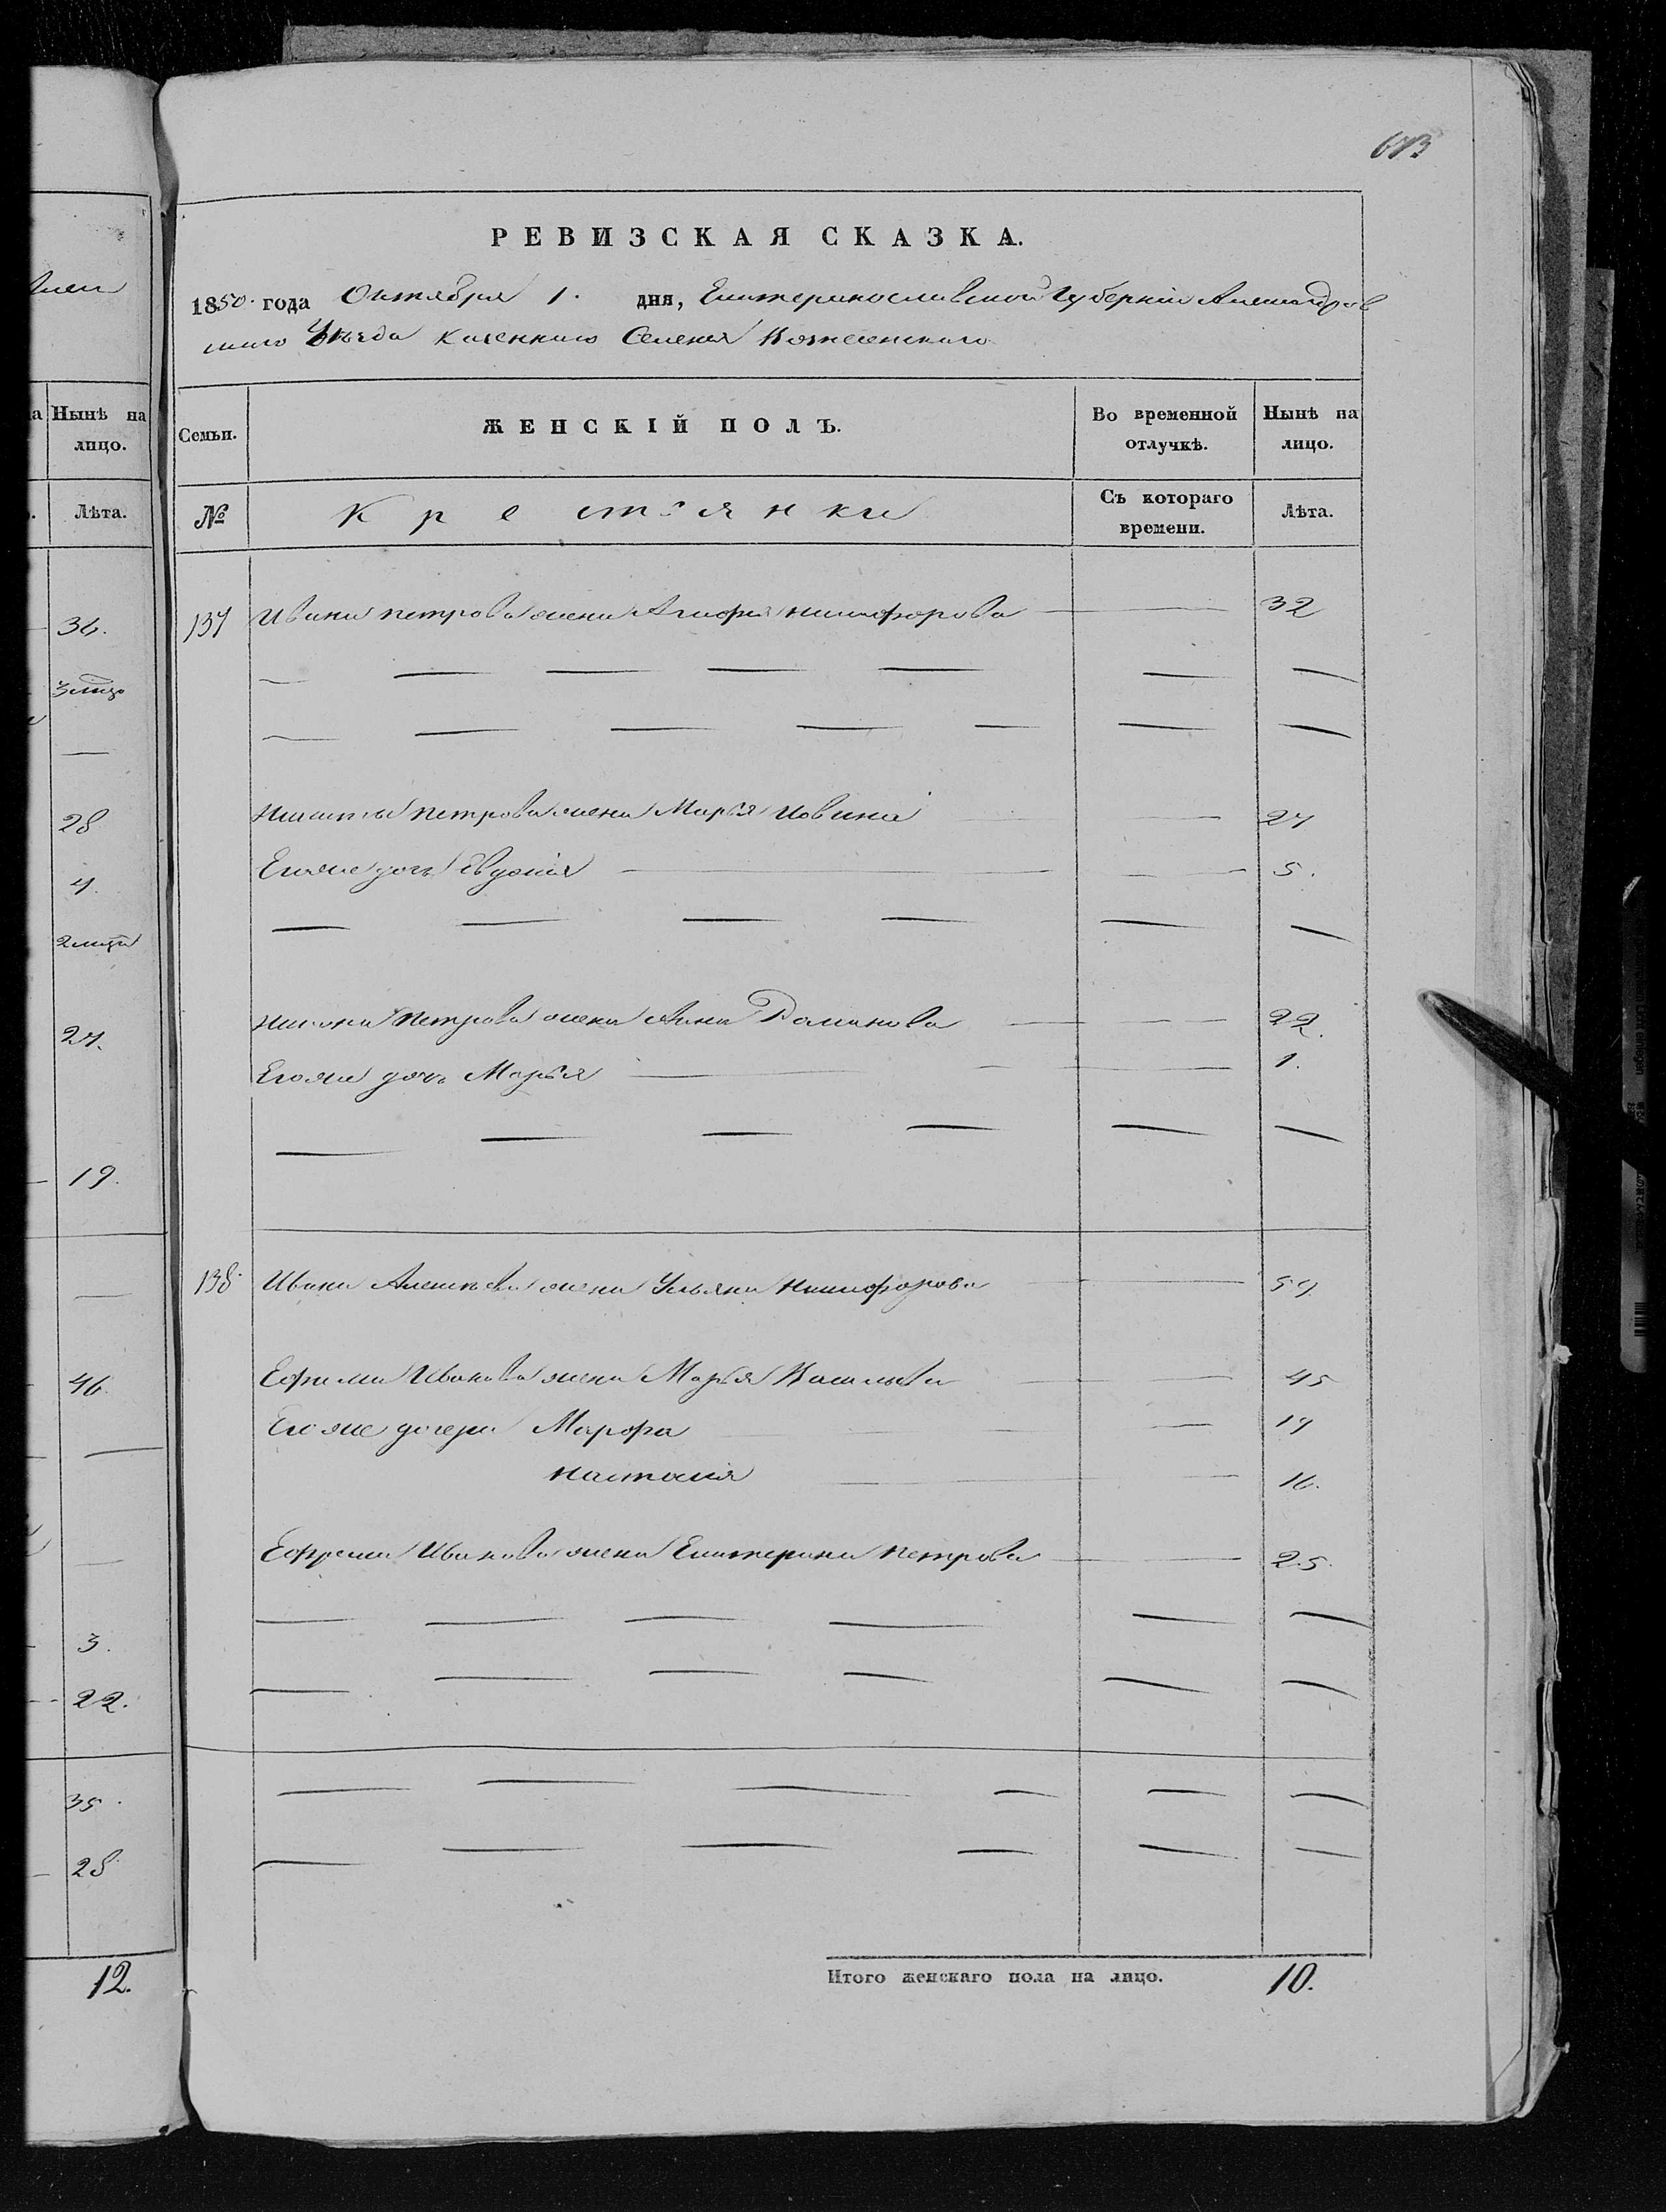 673
РЕВИЗСКАЯ СКАЗКА.
1850. года Октября 1. дня, Екатеринославской Губерніи Александров
скаго Уѣзда казеннаго Селенія Вознесенскаго
Нынѣ на лицо.
Лѣта.
Семьи. ЖЕНСКІЙ ПОЛЪ. Во временной отлучкѣ. Нынѣ на лицо.
№ Крестьянки Съ котораго времени. Лѣта.
137 Ивана Петрова жена Агафья Никифорова — 32
Никиты Петрова жена Марья — 27
Егоже дочь Евдокія — 5.
Никона Петрова жена Анна Романова — 22.
Егоже дочь Марья — 1.
138. Ивана Алексѣева жена Ульяна Никифорова —
Ефима Иванова жена Марья Васильева — 45
Егоже дочери Марфа — 17
Настасия — 16.
Ефрема Иванова жена Екатерина Петрова — 25.
Итого женскаго пола на лицо. 10.
36.
28
4.
27.
19.
46.
3.
22.
35.
28
12.